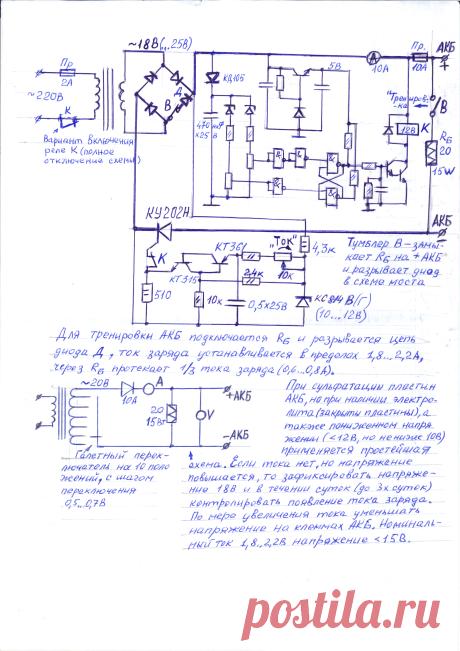 ~18В (..25В)
Пр.
2А
~220В
К
Вариант включения
реле К (полное
отключение схемы)
В
Д
КД105
470мкФ
×25В
5В
А
10А
Пр.
10А
АКБ
+
В
К
12В
Rб
20
15W
АКБ
КУ202Н
К
КТ361
КТ315
510
10к
0,5×25В
2,4к
„Ток"
10к
4,3к
КС814В/Г)
(10...12В)
Тумблер В – замы-
кает Rб на +АКБ
и разрывает диод
в схеме моста
Для тренировки АКБ подключается Rб и разрывается цепь
диода Д, ток заряда устанавливается в пределах 1,8...2,2А,
через Rб протекает 1/3 тока заряда (0,6...0,8А).
~20В
10А
А
20
15Вт
V
+АКБ
-АКБ
Галетный перек-
лючатель на 10 поло-
жений, с шагом
переключения
0,5...0,7В
При сульфатации пластин
АКБ, но при наличии электро-
лита (закрыти пластины), а
также пониженном напря-
жении (<12В, но не ниже 10В)
применяется простейшая
схема. Если тока нет, но напряжение
повышается, то зафиксировать напряже-
ние 18В и в течении суток (до 3х суток)
контролировать появление тока заряда.
По мере увеличения тока уменьшать
напряжение на клеммах АКБ. Номиналь-
ный ток 1,8..2,2В напряжение <15В.
postila.ru